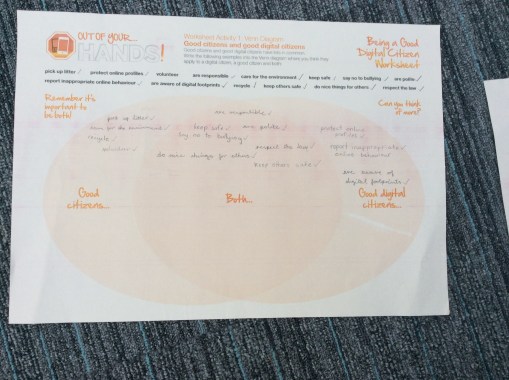 OUT OF YOUR...
HANDS!
Worksheet Activity 1: Venn Diagram
Good citizens and good digital citizens
Good citizens and good digital citizens have lots in common.
Write the following examples into the Venn diagram where you think they
apply to a digital citizen, a good citizen and both.
Being a Good
Digital Citizen
Worksheet
pick up litter ✓ protect online profiles ✓ volunteer are responsible ✓ care for the environment ✓ keep safe ✓ say no to bullying ✓ are polite ✓
report inappropriate online behaviour ✓ are aware of digital footprints ✓ recycle ✓ keep others safe ✓ do nice things for others ✓ respect the law ✓
Remember it's
important to
be both!
Can you think
of more?
are responsible ✓
pick up litter ✓
care for the environment ✓
recycle ✓
volunteer ✓
keep safe ✓ are polite ✓
say no to bullying ✓
respect the law ✓
do nice things for others ✓
keep others safe ✓
protect online
profiles ✓
report inappropriate ✓
online behaviour
are aware of
digital footprints ✓
Good
citizens...
Both...
Good digital
citizens...